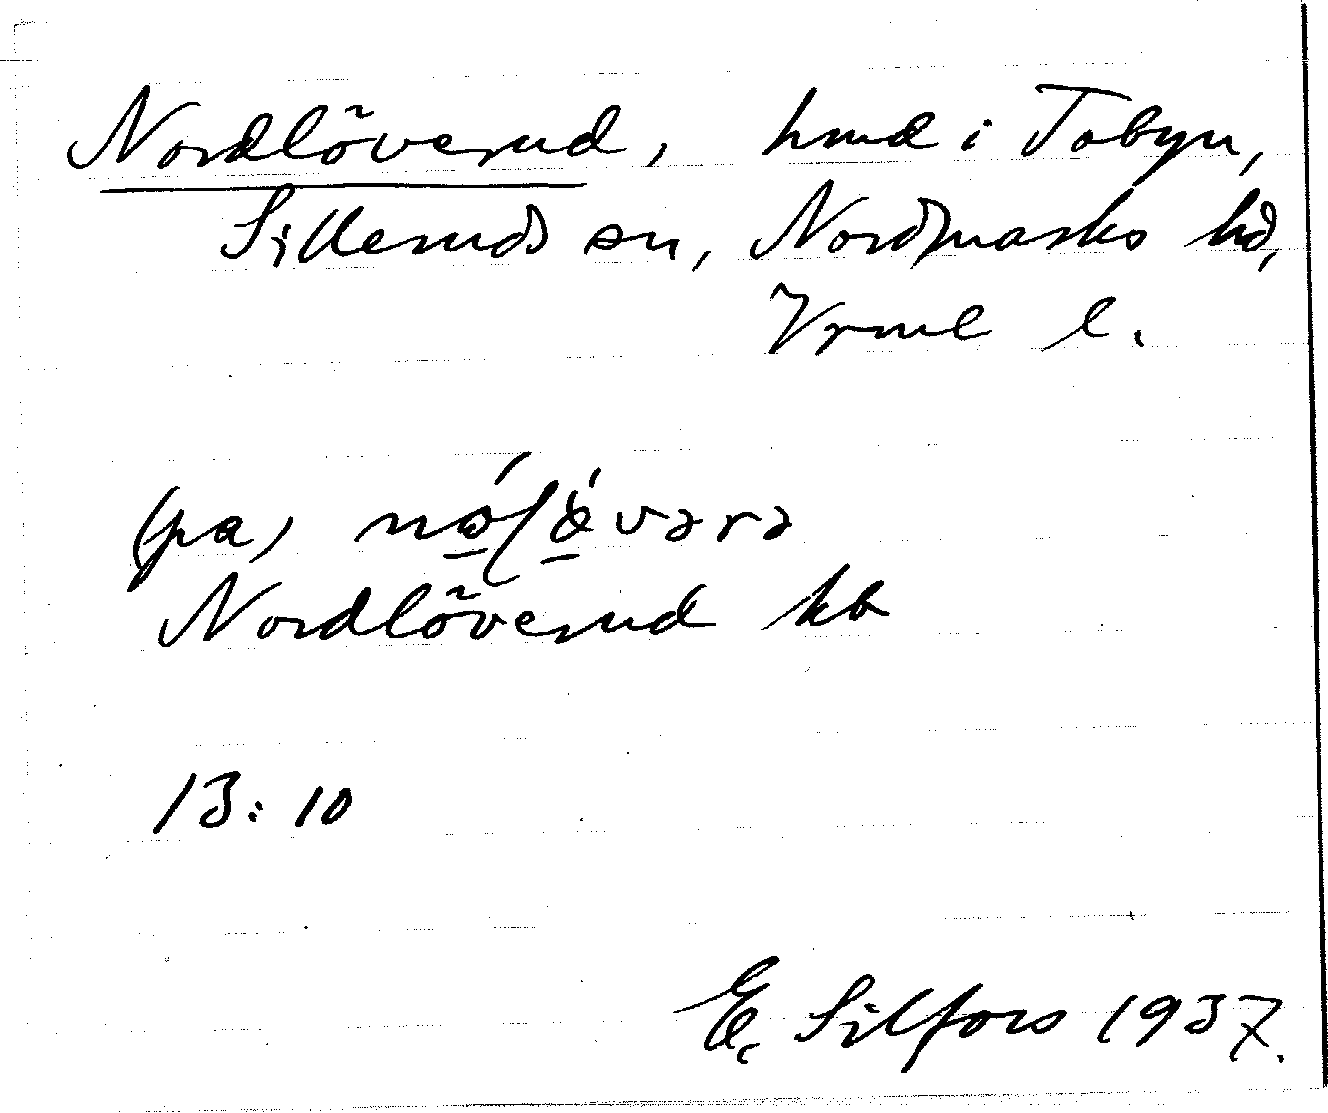 Nordlöverud, hmd i Tobyn,
Silleruds sn, Nordmarks hd,
Vrml l.
(på)
Nordlöverud kb
13:10
E. Silfors 1937.